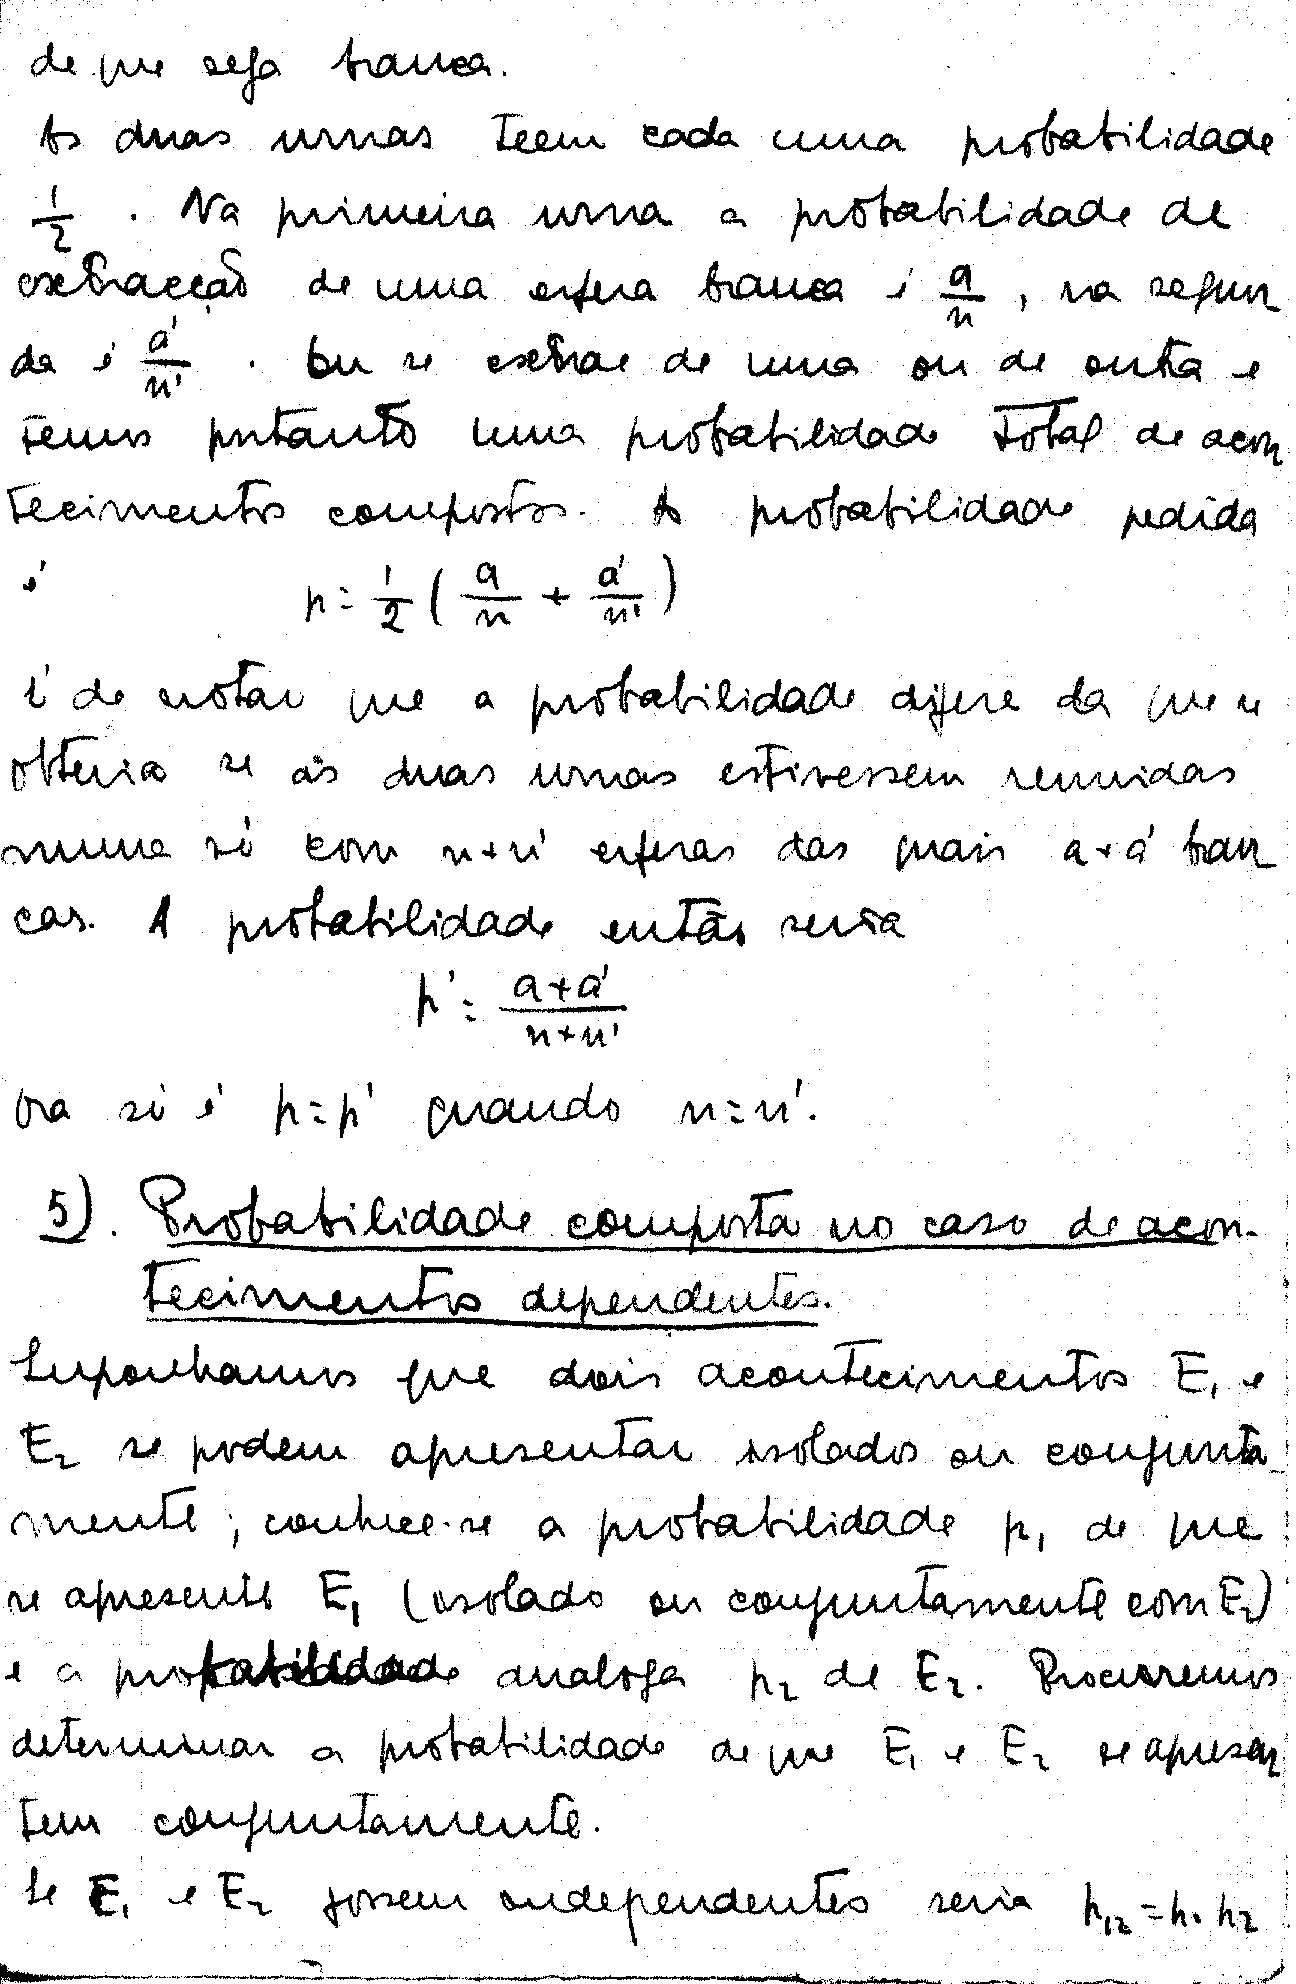 de que seja branca.
As duas urnas teem cada uma probabilidade
1/2 . Na primeira urna a probabilidade de
extracção de uma esfera branca é a/n , na segun
da é a'/n' . Ou se extrae de uma ou de outra e
temos portanto uma probabilidade total de acon
tecimentos compostos. A probabilidade pedida
é p = 1/2 ( a/n + a'/n' )
É de notar que a probabilidade difere da que se
obteria se as duas urnas estivessem reunidas
numa só com n+n' esferas das quais a+a' bran
cas. A probabilidade então seria
p' = (a+a')/(n+n')
Ora só é p=p' quando n=n'.
5). Probabilidade composta no caso de acon-
tecimentos dependentes.
Suponhamos que dois acontecimentos E₁ e
E₂ se podem apresentar isolados ou conjunta
mente ; conhece-se a probabilidade p₁ de que
se apresente E₁ (isolado ou conjuntamente com E₂)
e a probabilidade analoga p₂ de E₂. Procuremos
determinar a probabilidade de que E₁ e E₂ se apresen
tem conjuntamente.
Se E₁ e E₂ fossem independentes seria p₁₂ = p₁ p₂